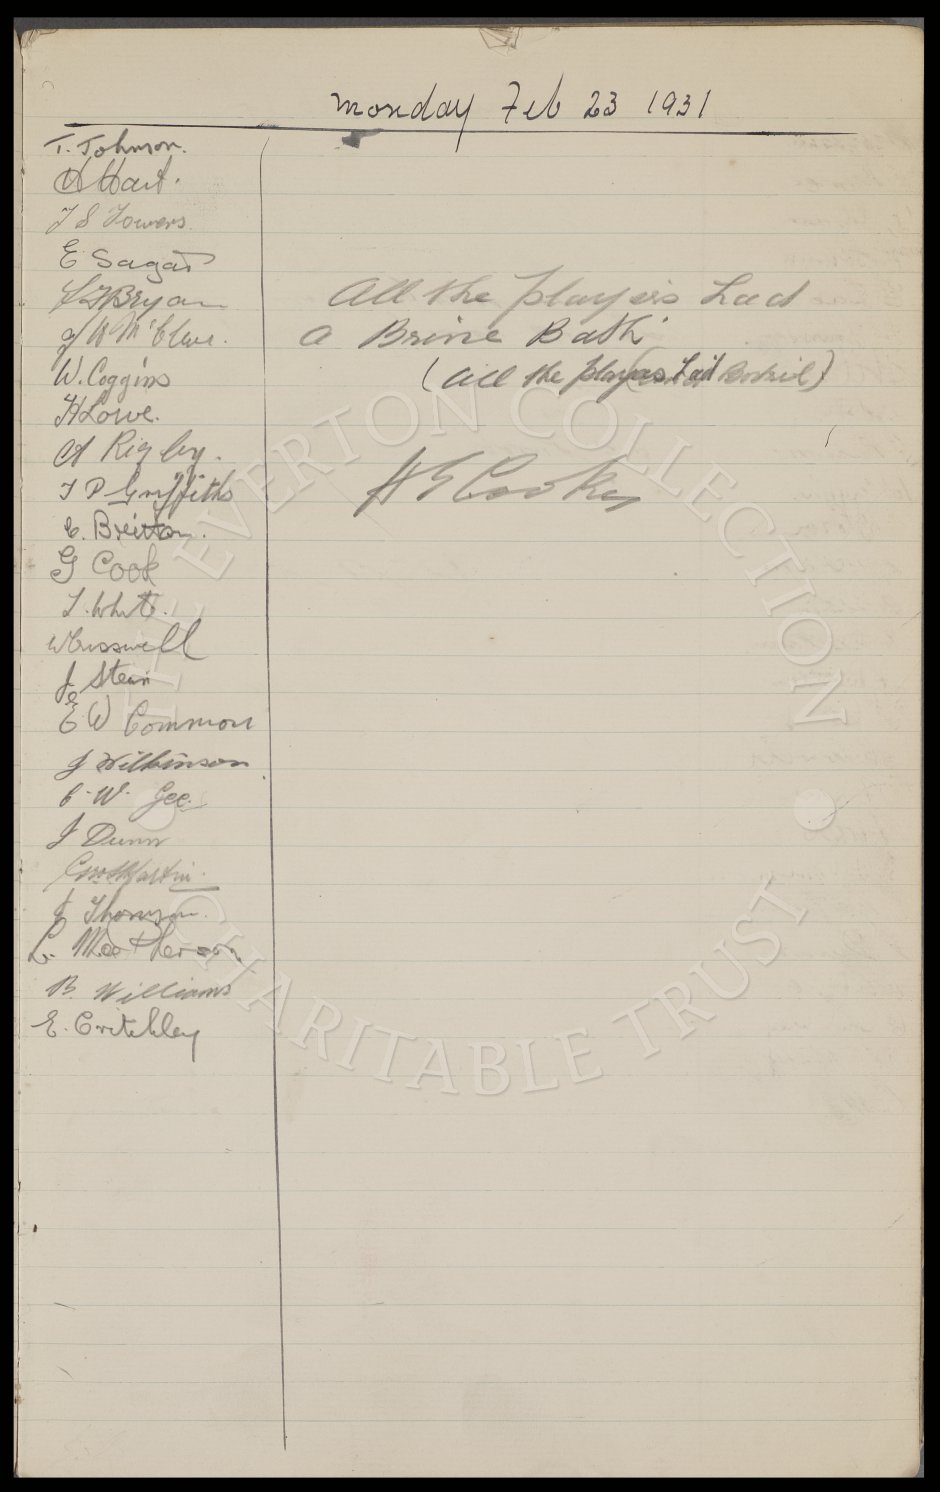 Monday Feb 23 1931
T. Johnson.
A Hart.
J S Towers
E Sagar
F Bryan
J W McClure.
W. Coggins
H Lowe.
A Rigby.
T P Griffiths
C. Britton.
G Cook
T. White.
W Cresswell
J Stein
E W Common
J Wilkinson
C. W. Gee.
J Dunn
Geo S Martin.
J Thomson.
L. MacPherson
B. Williams
E. Critchley
All the players had
a Brine Bath
(All the players had Bovril)
H E Cooke
THE EVERTON COLLECTION
CHARITABLE TRUST